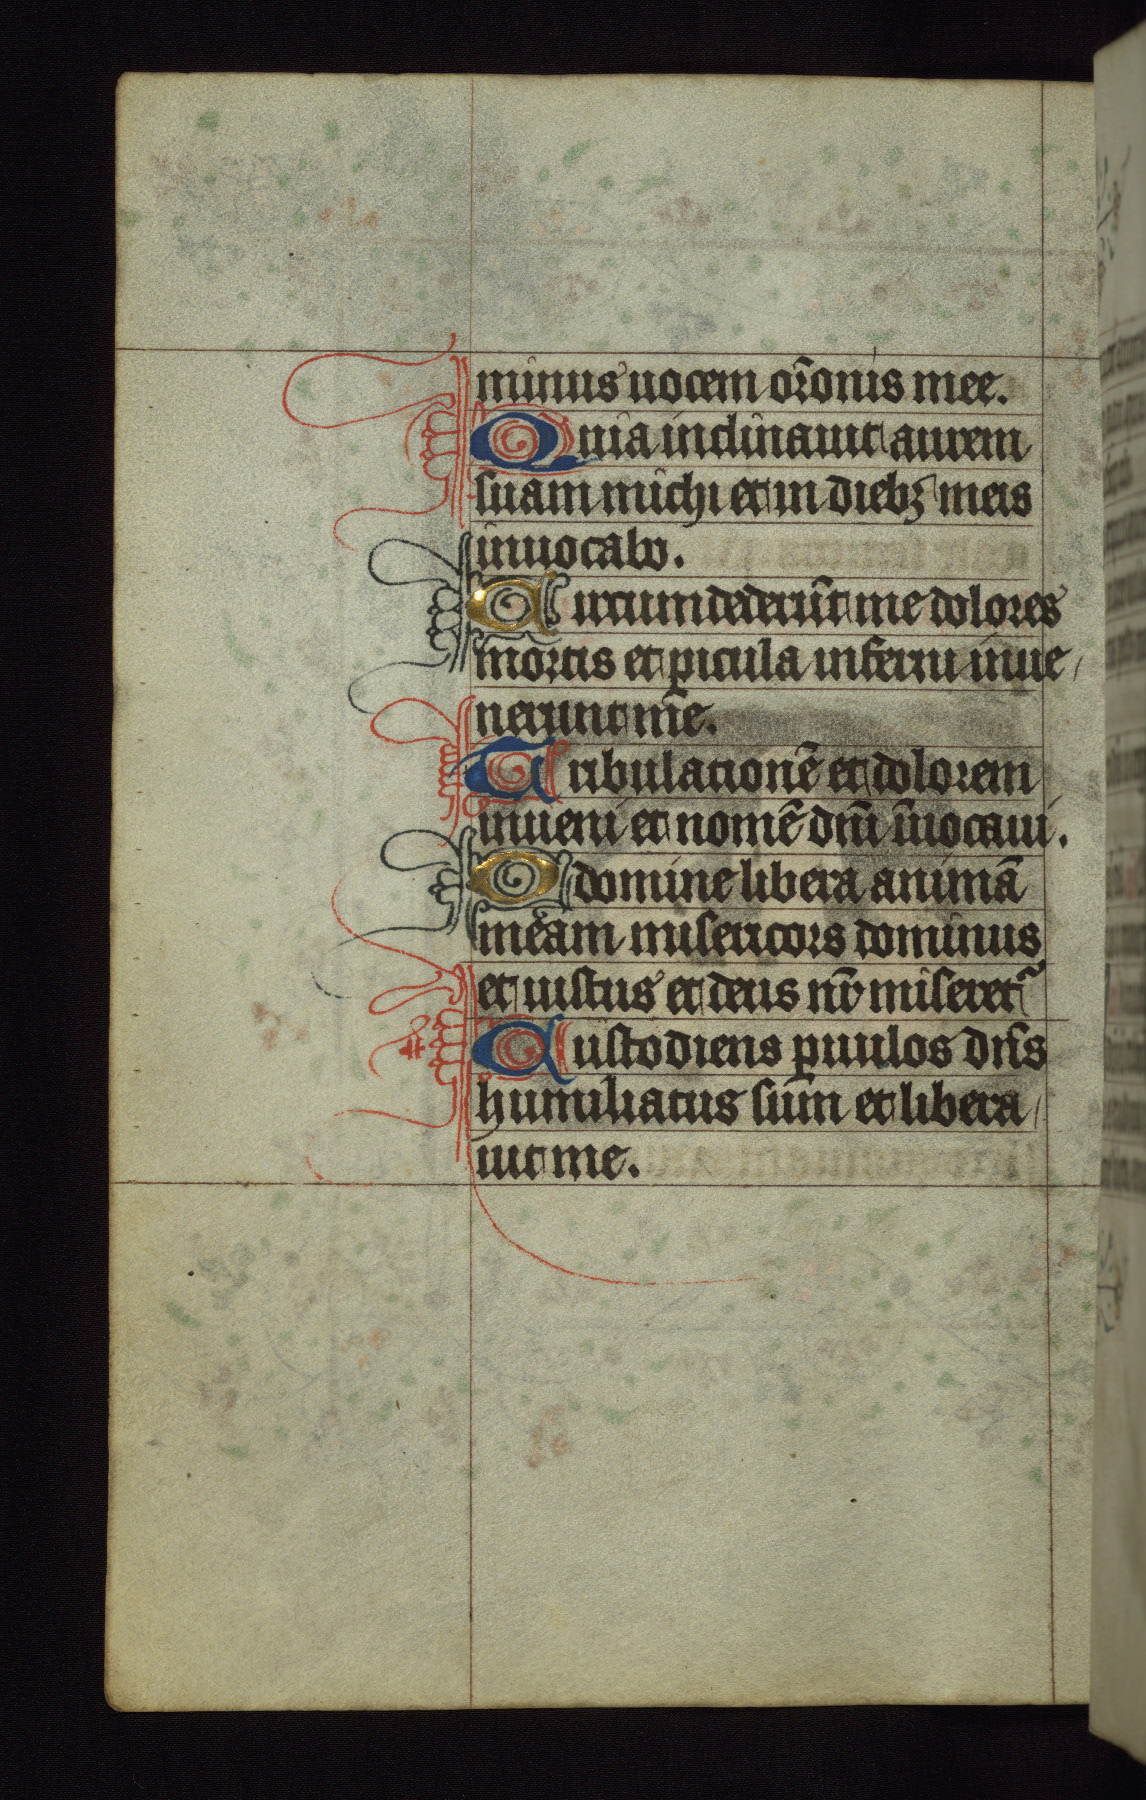 minus uocem or̄onis mee.
Quia inclinauit aurem
suam michi et in diebꝫ meis
inuocabo.
Circumdederūt me dolores
mortis et ꝑicula inferni inue
nerunt me.
Tribulationē et dolorem
inueni et nomē dn̄i īuocaui.
O domine libera animā
meam misericors dominus
et iustus et deus nr̄ miseretᷣ
Custodiens ꝑuulos dn̄s
humiliatus sum et libera
uit me.